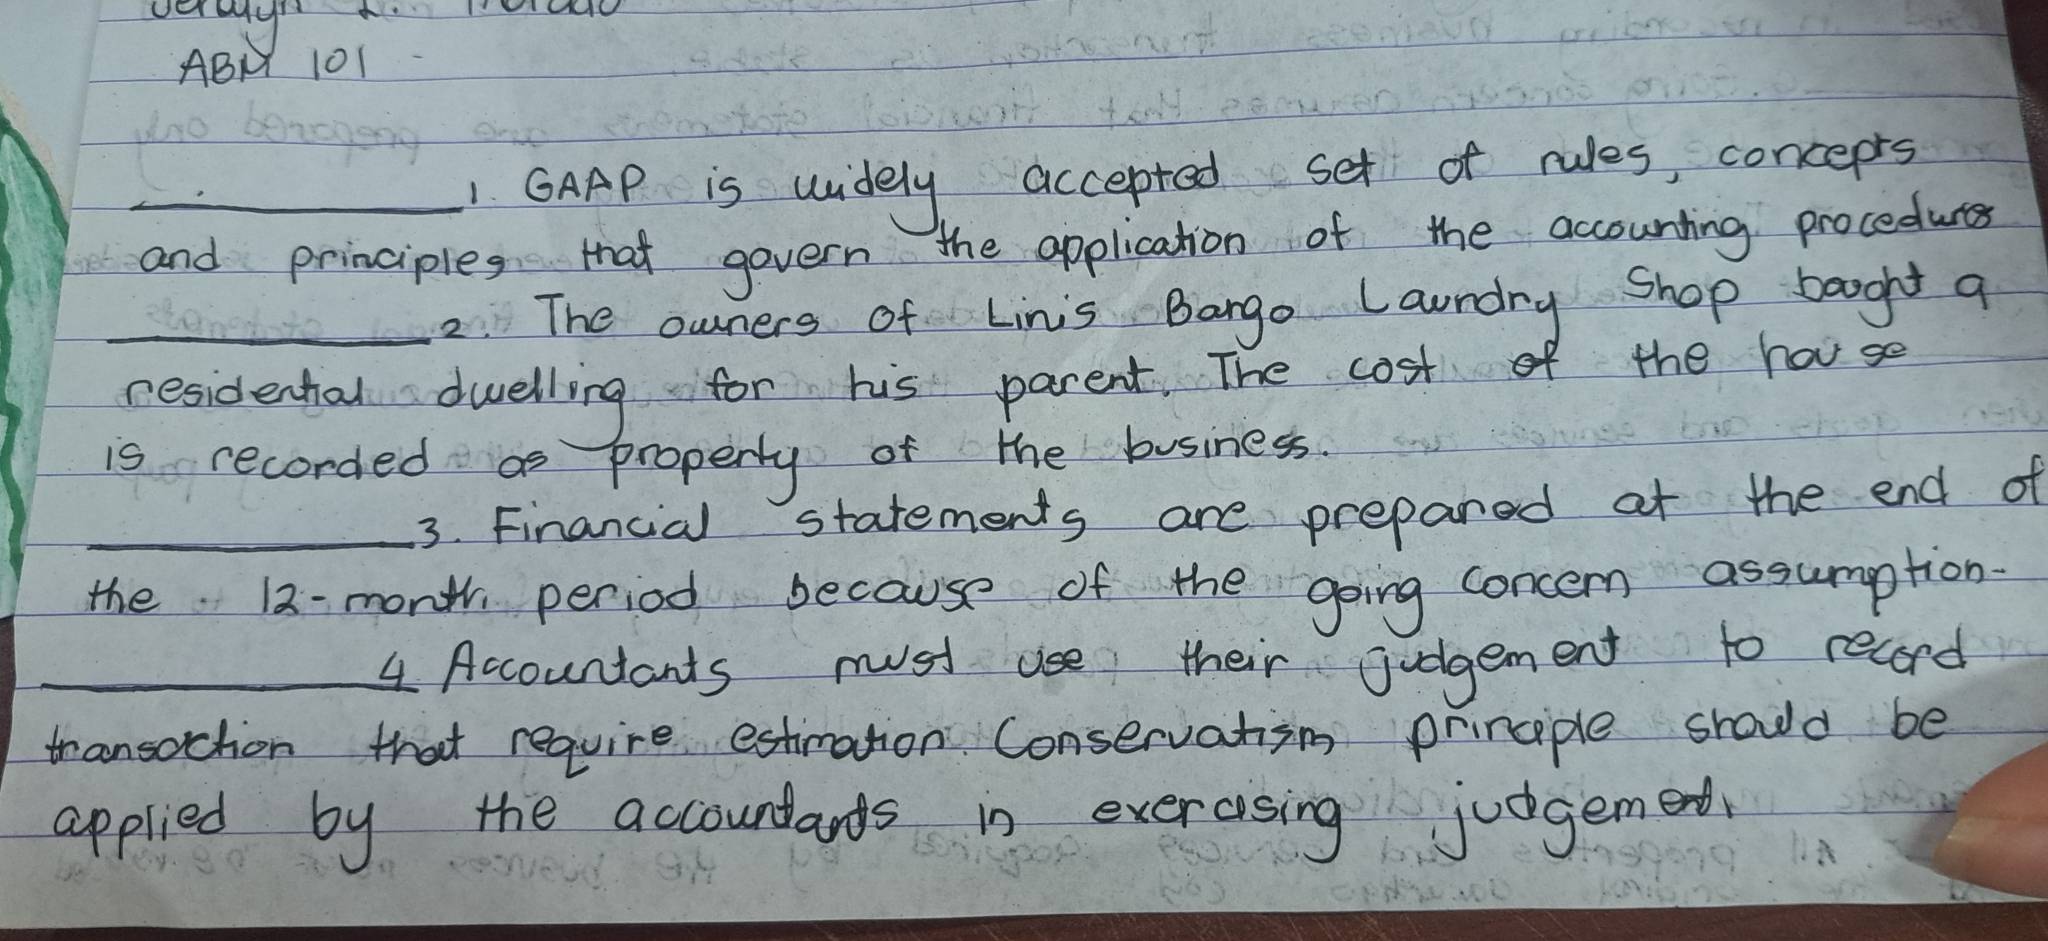 ABM 101
1. GAAP is widely accepted set of rules, concepts
and principles that govern the application of the accounting procedures
2. The owners of Lini's Bango Laundry Shop bought a
residential dwelling for his parent. The cost of the house
is recorded as property of the business.
3. Financial statements are prepared at the end of
the 12-month period because of the going concern assumption.
4. Accountants must use their judgement to record
transaction that require estimation. Conservatism principle should be
applied by the accountants in exercising judgement.